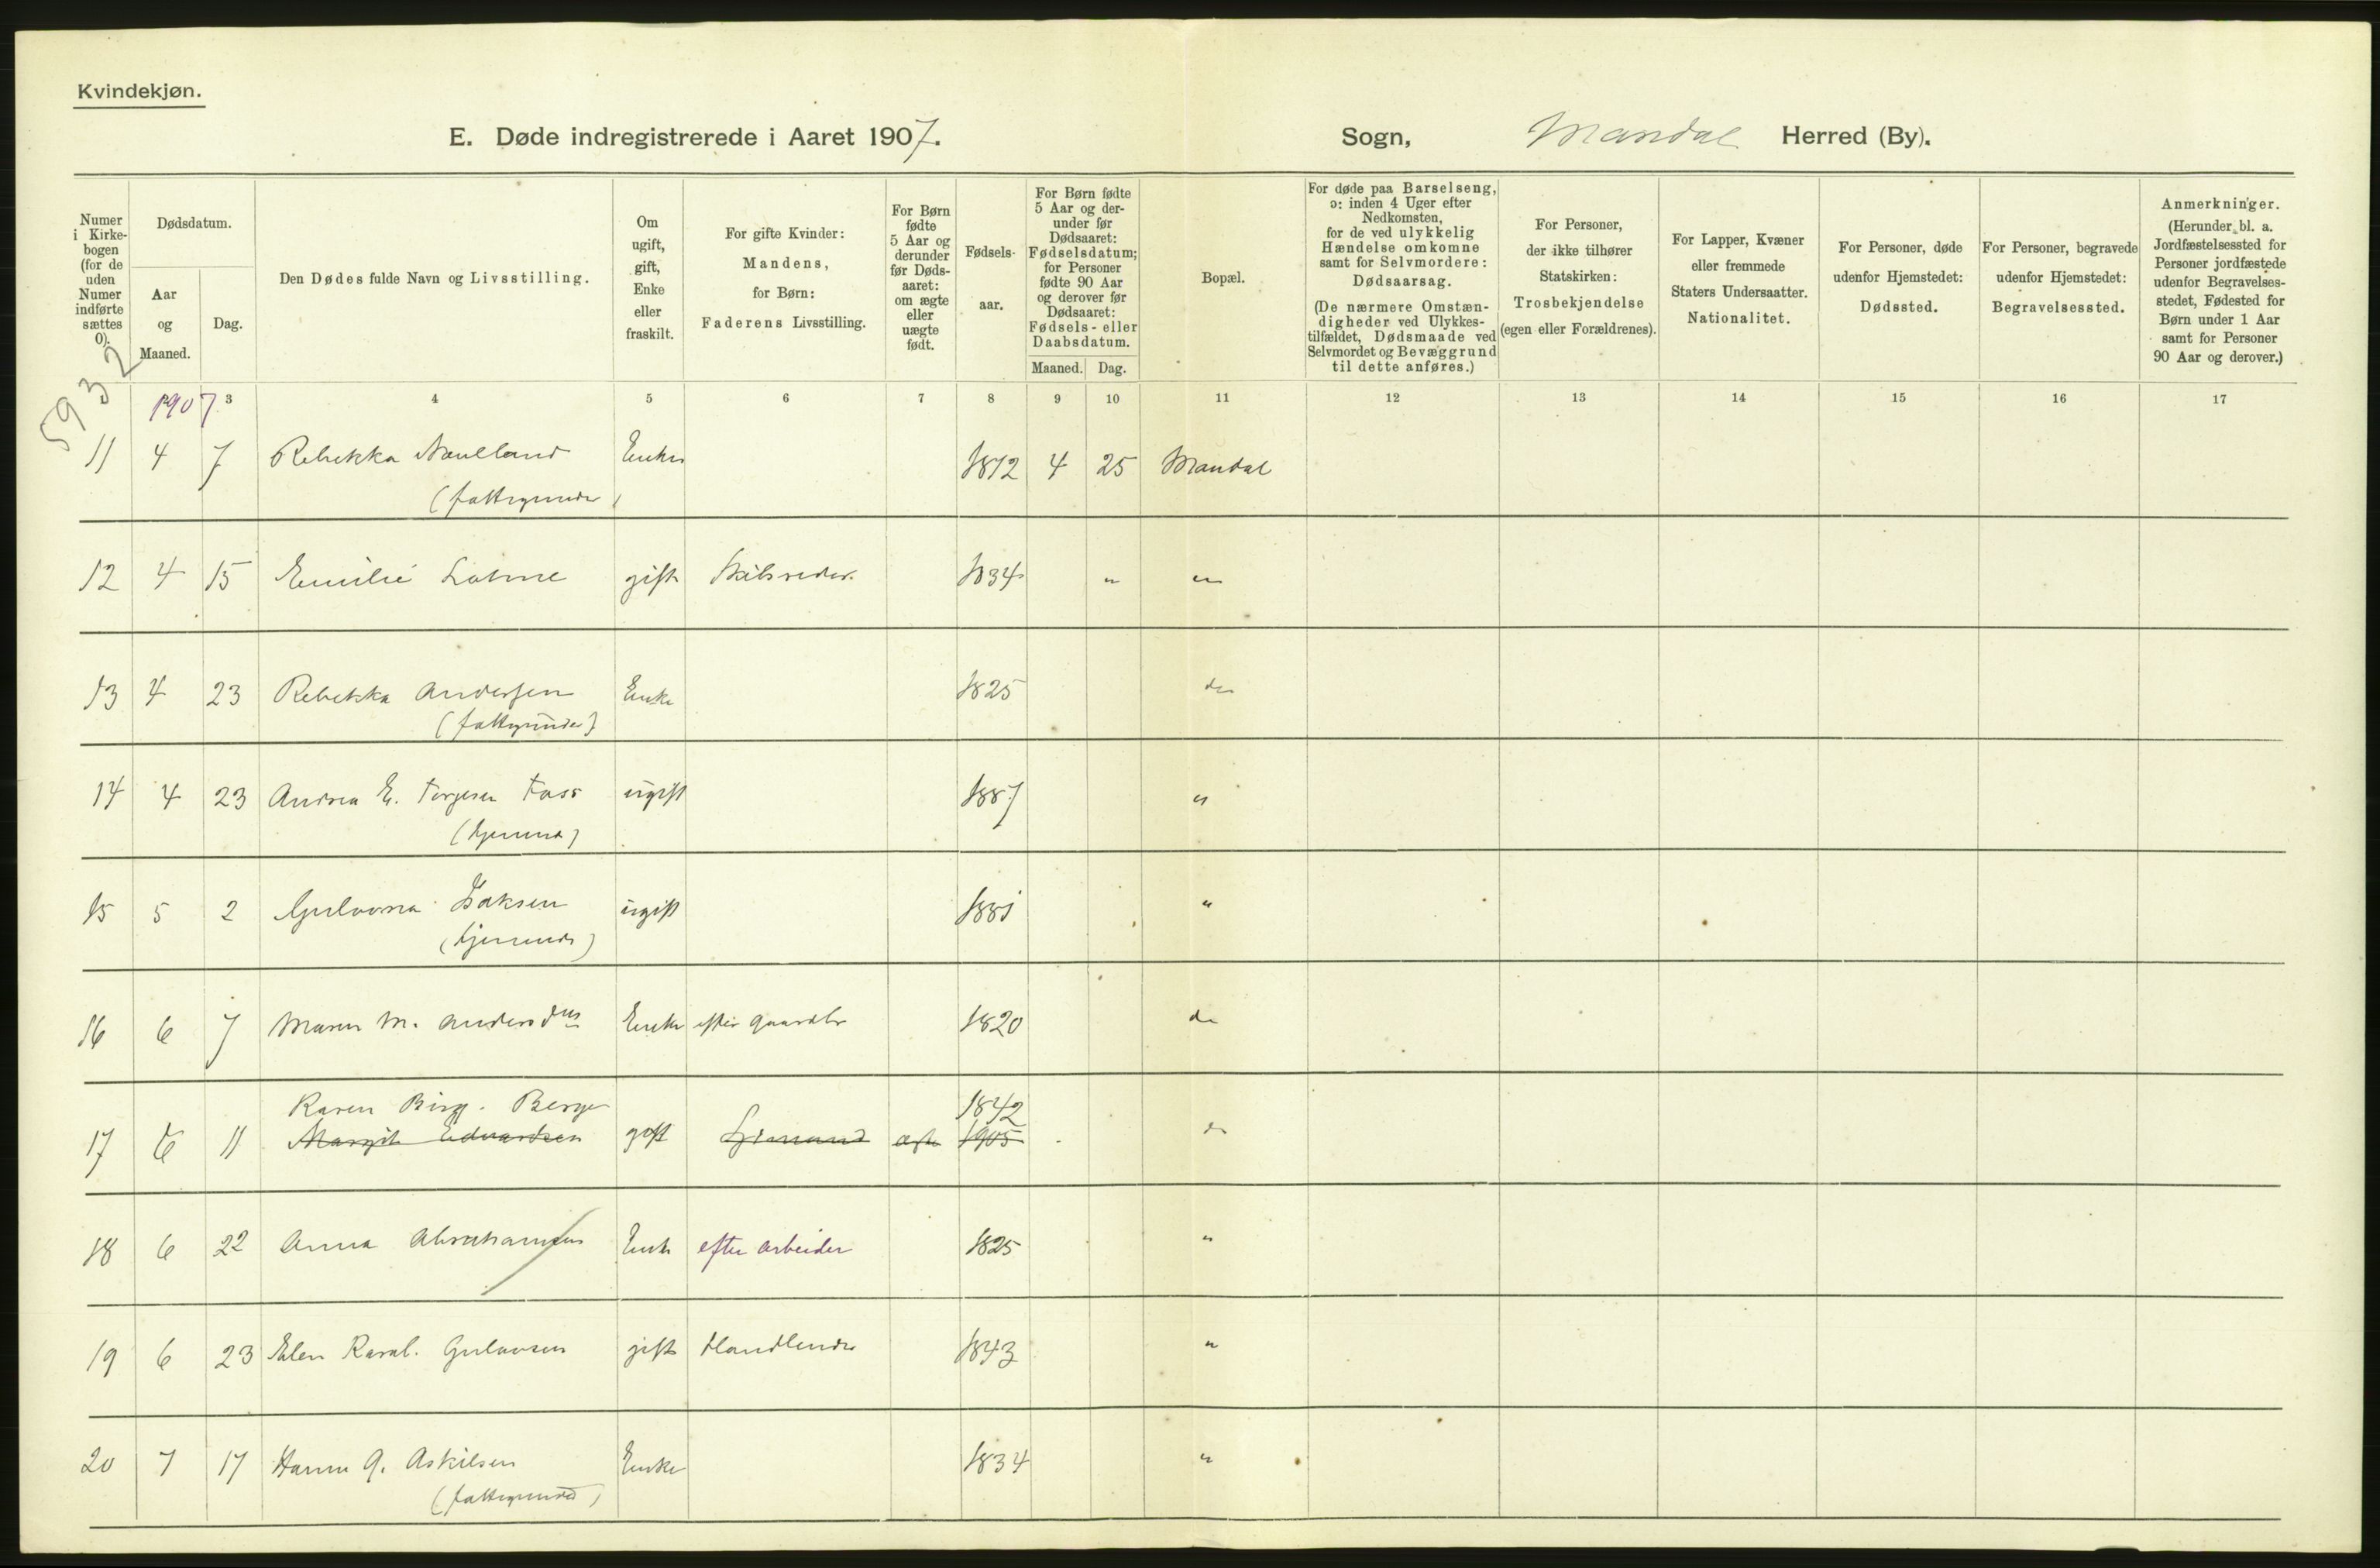 Kvindekjøn.
E. Døde indregistrerede i Aaret 1907. Sogn, Mandal Herred (By).
Numer i Kirkebogen (for de uden Numer indførte sættes 0).
Dødsdatum.
Aar og Maaned.
Dag.
Den Dødes fulde Navn og Livsstilling.
Om ugift, gift, Enke eller fraskilt.
For gifte Kvinder: Mandens, for Børn: Faderens Livsstilling.
For Børn fødte 5 Aar og derunder før Dødsaaret: om ægte eller uægte født.
Fødselsaar.
For Børn fødte 5 Aar og derunder før Dødsaaret: Fødselsdatum; for Personer fødte 90 Aar og derover før Dødsaaret: Fødsels- eller Daabsdatum.
Maaned. Dag.
Bopæl.
For døde paa Barselseng, ɔ: inden 4 Uger efter Nedkomsten, for de ved ulykkelig Hændelse omkomne samt for Selvmordere: Dødsaarsag.
(De nærmere Omstændigheder ved Ulykkestilfældet, Dødsmaade ved Selvmordet og Bevæggrund til dette anføres.)
For Personer, der ikke tilhører Statskirken: Trosbekjendelse (egen eller Forældrenes).
For Lapper, Kvæner eller fremmede Staters Undersaatter. Nationalitet.
For Personer, døde udenfor Hjemstedet: Dødssted.
For Personer, begravede udenfor Hjemstedet: Begravelsessted.
Anmerkninger. (Herunder bl. a. Jordfæstelsessted for Personer jordfæstede udenfor Begravelsesstedet, Fødested for Børn under 1 Aar samt for Personer 90 Aar og derover.)
5932
1907 3 4 5 6 7 8 9 10 11 12 13 14 15 16 17
11 4 7 Rebekka Enke 1812 4 25 Mandal
12 4 15 Emilie gift Skibsreder. 1834 " "
13 4 23 Rebekka Andersen Enke 1825 do
14 4 23 Andrea E. Torgesen Foss ugift 1887 "
15 5 2 Isaksen ugift 1881 "
16 6 7 Maren M. Enke efter 1820 do
Karen Birg. Berge 1842
17 6 11 Margit Eduardsen gift ægte 1905 do
18 6 22 Anna Abrahamsen Enke efter arbeider 1825 "
19 6 23 Elen gift Handlende 1843 "
20 7 17 Askilsen Enke 1834 "